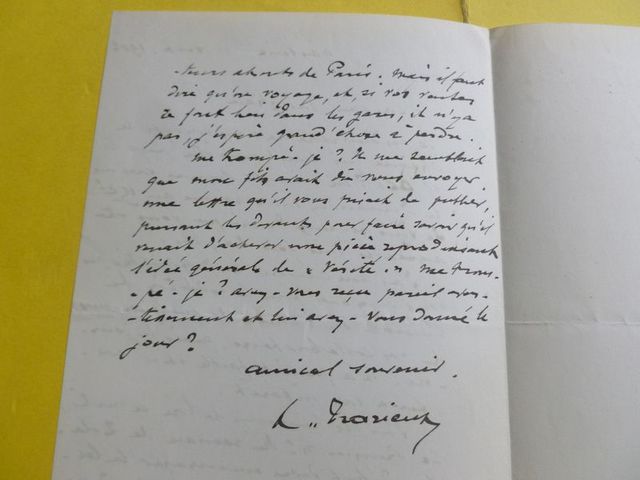 -teurs absents de Paris. Mais il faut
dire qu'on voyage, et, si vos ventes
se font bien dans les gares, il n'y a
pas, j'espère grand'chose à perdre.
Me trompé-je ? Il me semblait
que mon fils avait dû vous envoyer
une lettre qu'il vous priait de publier,
prenant les devants pour faire savoir qu'il
venait d'achever une pièce reproduisant
l'idée générale de « Vérité. » Me trom-
-pé-je ? Avez-vous reçu pareil aver-
-tissement et lui avez-vous donné le
jour ?
Amical souvenir.
L. Trarieux